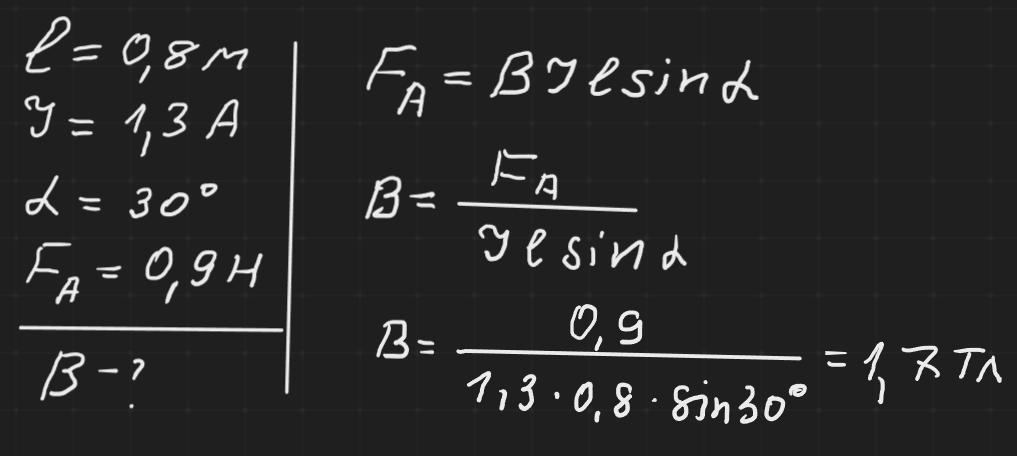 l = 0,8 м
I = 1,3 А
α = 30°
F_A = 0,9 Н
B - ?
F_A = B I l sin α
B = F_A / (I l sin α)
B = 0,9 / (1,3 · 0,8 · sin 30°) = 1,7 Тл